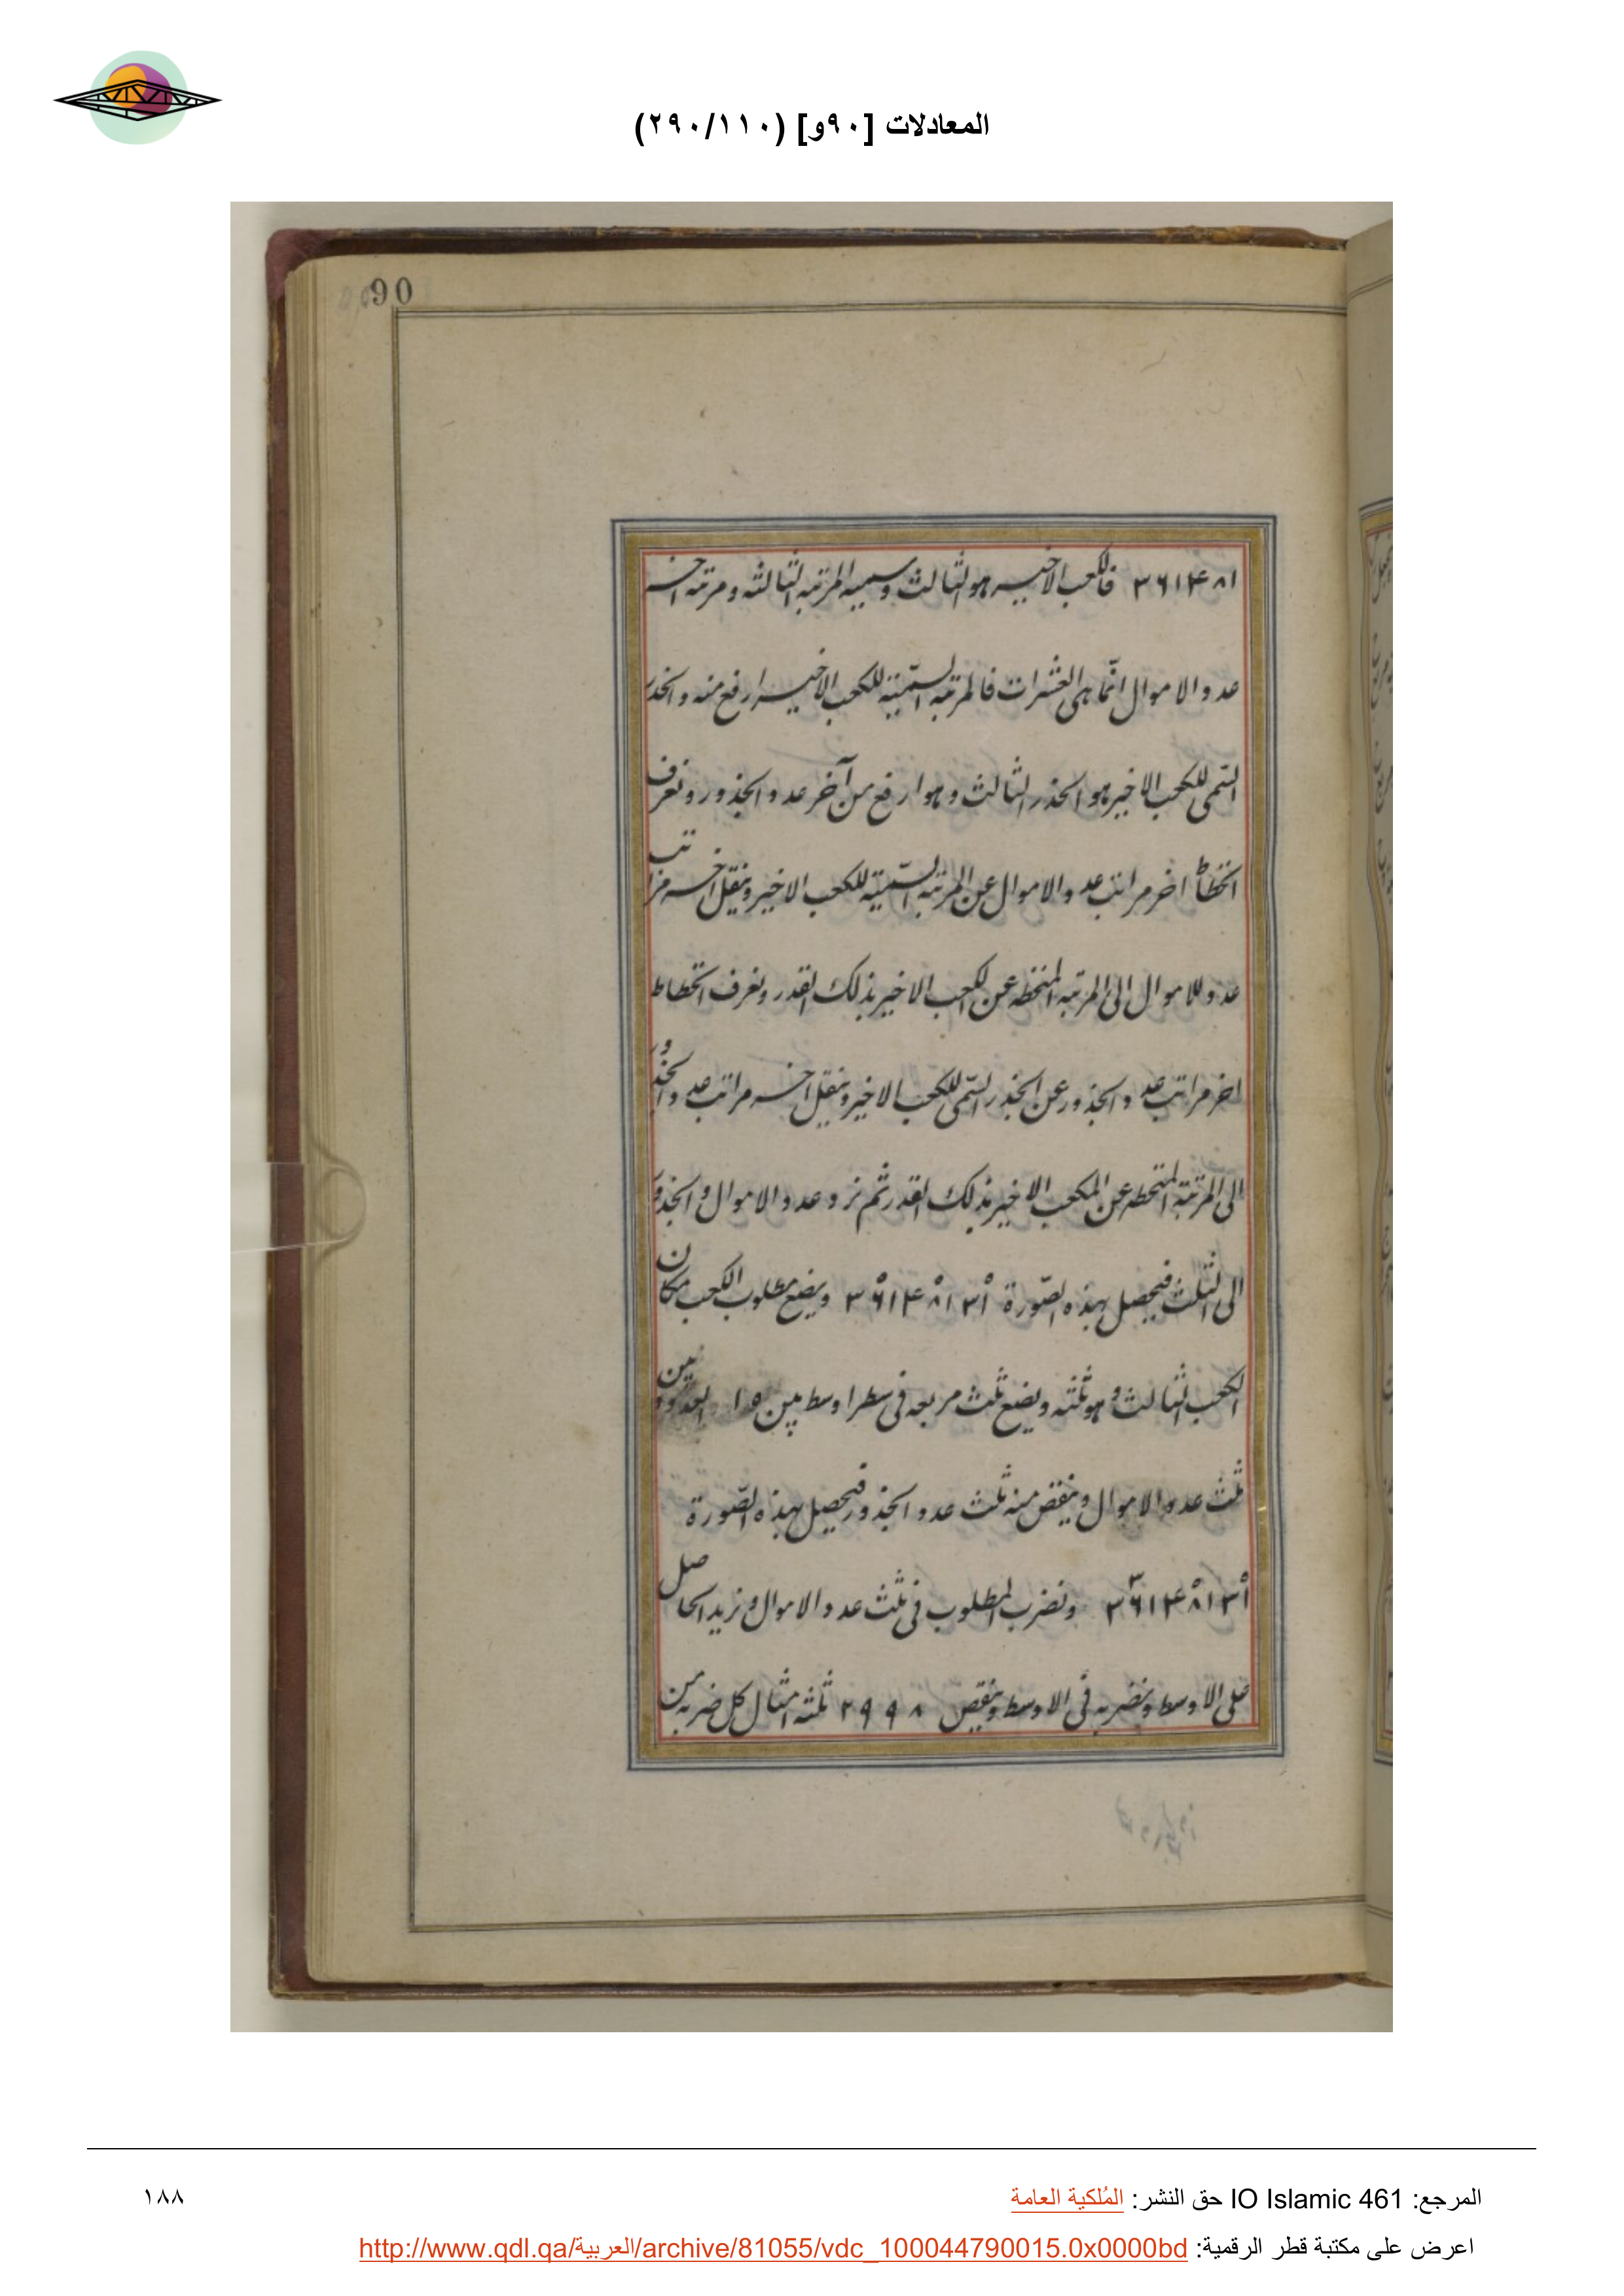 المعادلات [٩٠و] (٢٩٠/١١٠)
90
٣٦١٤٨١ فالكعب الاخير هو الثالث وسميه المرتبه الثالثه ومرتبه اخر
عدد الاموال انّما هى العشرات فالمرتبه السّميّة للكعب الاخير ارفع منه والجذر
السّمى للكعب الاخير هو الجذر الثالث وهو ارفع من آخر عدد الجذور ونعرف
انحطاط اخر مراتب عدد الاموال عن المرتبه السّميّة للكعب الاخير وننقل اخر مراتب
عدد الاموال الى المرتبه المنحطه عن الكعب الاخير بذلك القدر ونعرف انحطاط
اخر مراتب عدد الجذور عن الجذر السّمى للكعب الاخير وننقل اخر مراتب عدد الجذور
الى المرتبة المنحطه عن المكعب الاخير بذلك القدر ثم نرد عدد الاموال والجذور
الى الثلث فيحصل بهذه الصّورة ويضع مطلوب الكعب مكان
الكعب الثالث وهو ثلثه ويضع ثلث مربعه فى سطر اوسط بين العددين
ثلث عدد الاموال وينقص منه ثلث عدد الجذور فيحصل بهذه الصّورة
ونضرب المطلوب فى ثلث عدد الاموال ونزيد الحاصل
على الاوسط ونضربه فى الاوسط وينقص ٢٩٩٨ ثلثه امثال كل ضربه من
المرجع: IO Islamic 461 حق النشر: المُلكية العامة
١٨٨
اعرض على مكتبة قطر الرقمية: http://www.qdl.qa/العربية/archive/81055/vdc_100044790015.0x0000bd